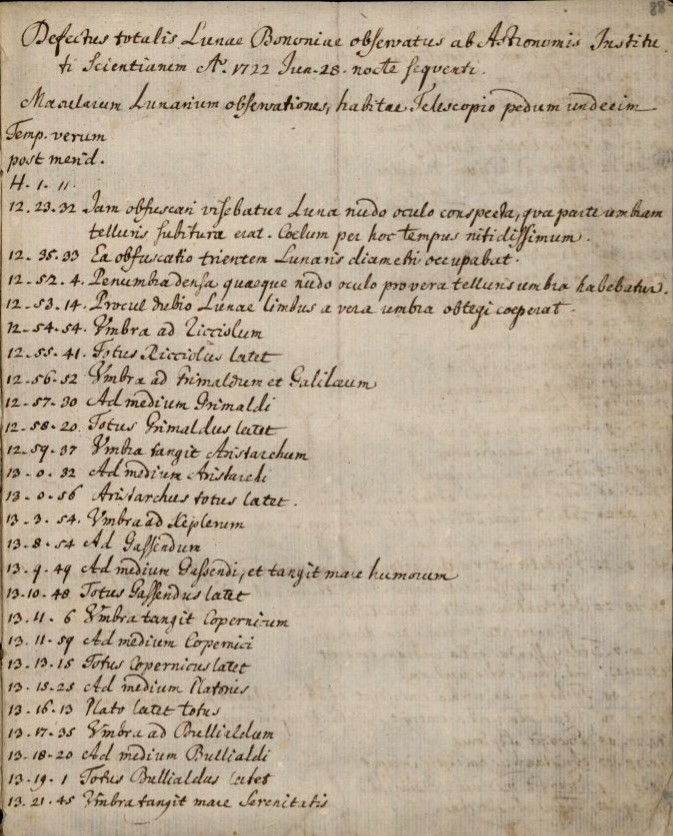 88
Defectus totalis Lunae Bononiae observatus ab Astronomis Institu
ti Scientiarum A.º 1722 Jun. 28. nocte sequenti.
Macularum Lunarium observationes, habitae Telescopio pedum undecim
Temp. verum
post merid.
H. I. II.
12. 23. 32 Jam obfuscari visebatur Luna nudo oculo conspecta, qva parte umbram
telluris subitura erat. Coelum per hoc tempus nitidissimum.
12. 35. 33 Ea obfuscatio trientem Lunaris diametri occupabat.
12. 52. 4. Penumbra densa quaeque nudo oculo pro vera telluris umbra habebatur.
12. 53. 14. Procul dubio Lunae limbus a vera umbra obtegi coeperat.
12. 54. 54. Umbra ad Ricciolum
12. 55. 41. Totus Ricciolus latet
12. 56. 52 Umbra ad Grimaldum et Galilaeum
12. 57. 30 Ad medium Grimaldi
12. 58. 20. Totus Grimaldus latet
12. 59. 37 Umbra tangit Aristarchum
13. 0. 32 Ad medium Aristarchi
13. 0. 56 Aristarchus totus latet.
13. 3. 54. Umbra ad Keplerum
13. 8. 54 Ad Gassendum
13. 9. 49 Ad medium Gassendi, et tangit mare humorum
13. 10. 48 Totus Gassendus latet
13. 11. 6 Umbra tangit Copernicum
13. 11. 59 Ad medium Copernici
13. 13. 15 Totus Copernicus latet
13. 15. 25 Ad medium Platonis
13. 16. 13 Plato latet totus
13. 17. 35 Umbra ad Bullialdum
13. 18. 20 Ad medium Bullialdi
13. 19. 1 Totus Bullialdus latet
13. 21. 45 Umbra tangit mare Serenitatis